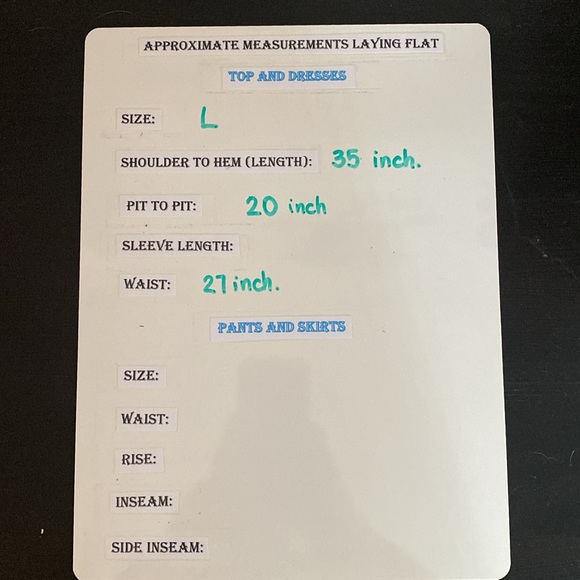 APPROXIMATE MEASUREMENTS LAYING FLAT
TOP AND DRESSES
SIZE: L
SHOULDER TO HEM (LENGTH): 35 inch.
PIT TO PIT: 20 inch
SLEEVE LENGTH:
WAIST: 27 inch.
PANTS AND SKIRTS
SIZE:
WAIST:
RISE:
INSEAM:
SIDE INSEAM: